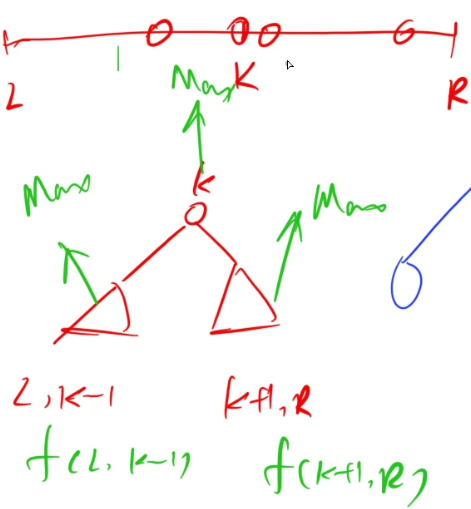 L K R
Max
k
Max Max
L, k-1 k+1, R
f(L, k-1) f(k+1, R)